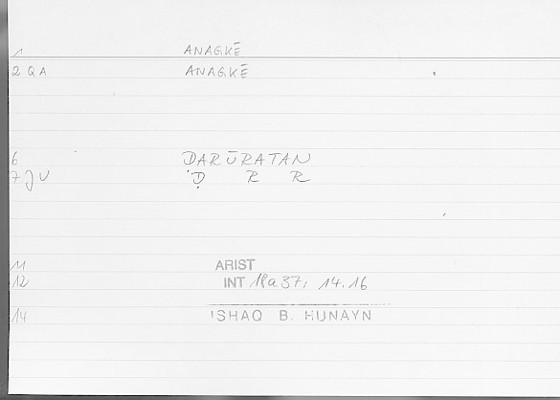 1 ANAGKĒ
2 QA ANAGKĒ
6 DARŪRATAN
7 JU Ḍ R R
11 ARIST
12 INT 19a37; 14.16
14 ISHAQ B. HUNAYN